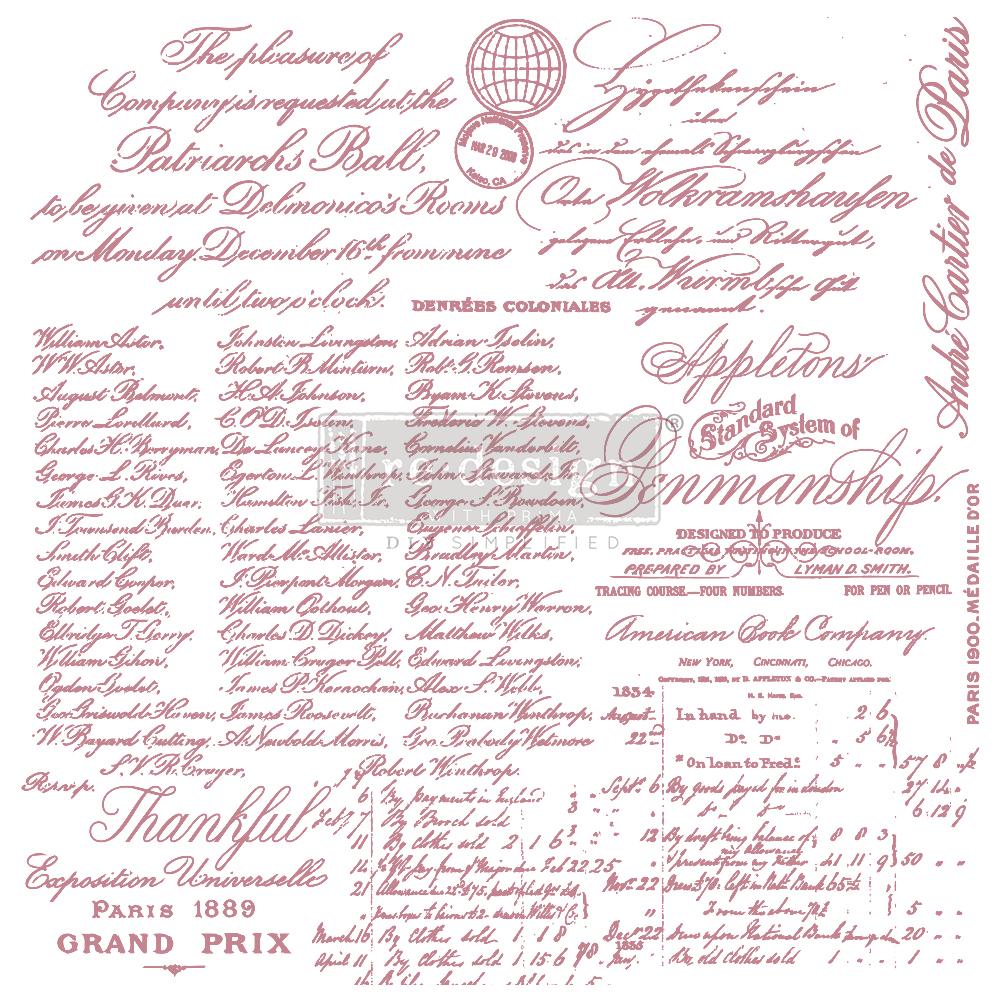 The pleasure of
Company is requested at the
Patriarchs Ball,
to be given at Delmonico's Rooms
on Monday. December 16th from nine
until two o'clock.
Mojave National Preserve
MAR 29 2008
Kelso, CA
Hypothekenschein
über
das in dem ehemals
Wolkramshausen
gelegene Erblehn- und Rittergut,
das Adl. Wurmb'sche Gut
genannt.
André Cartier de Paris
DENRÉES COLONIALES
William Astor. Johnston Livingston, Adrian Iselin,
W.W. Astor. Robert B. Minturn, Robt. G. Remsen,
August Belmont, H. A. Johnson, Byam K. Stevens,
Pierre Lorillard, C. O'D. Iselin, Frederic W. Stevens,
Charles H. Berryman, De Lancey Cornelius Vanderbilt,
George L. Rives, Egerton
James G. K. Duer, Hamilton George S. Bowdoin,
J. Townsend Burden, Charles Lanier, Eugene Schieffelin,
Smith Clift, Ward McAllister, Bradley Martin,
Edward Cooper, J. Pierpont Morgan, E. N. Tailer,
Robert Goelet, William Oothout, Geo. Henry Warren,
Elbridge T. Gerry, Charles D. Dickey, Matthew Wilks,
William Gihon, William Cruger Pell, Edward Livingston,
Ogden Goelet, James P. Kernochan, Alex S. Webb,
Geo. Griswold Haven, James Roosevelt, Buchanan Winthrop,
W. Bayard Cutting, A. Newbold Morris, Geo. Peabody Wetmore
S. V. R. Cruger, Robert Winthrop.
R.s.v.p.
re·design®
WITH PRIMA
DIY SIMPLIFIED
Appletons'
Standard
System of
Penmanship.
DESIGNED TO PRODUCE
FREE, PRACTICAL WRITING IN THE SCHOOL-ROOM.
PREPARED BY LYMAN D. SMITH.
TRACING COURSE.—FOUR NUMBERS. FOR PEN OR PENCIL.
PARIS 1900. MÉDAILLE D'OR
American Book Company.
NEW YORK, CINCINNATI, CHICAGO.
COPYRIGHT, BY D. APPLETON & CO.—PATENT APPLIED FOR.
1834
August In hand by me. 2 6
22nd Do. Do 5 6½
" On loan to Fred. 5 " " 57 8 " ½
Sept. 6 By goods payed for in London 27 14 "
6 12 9
12 By draft being balance of 8 8 3
my allowance
" present from my Father 41 11 9 50 " "
Nov. 22
5 " "
Decr 22 20 " "
1835
Jan. By old Clothes sold 1 " "
6 By payments in England
Feby 7 By Brooch sold 3
11 By clothes sold 2 1 6
14 Feb 22, 25
21
March 16 By Clothes sold 1 1 8
April 11 By Clothes sold 1 15 6
Thankful
Exposition Universelle
PARIS 1889
GRAND PRIX